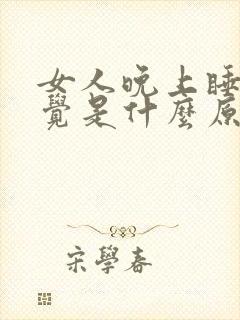 女人晚上睡
覺是什麼原
宋學春